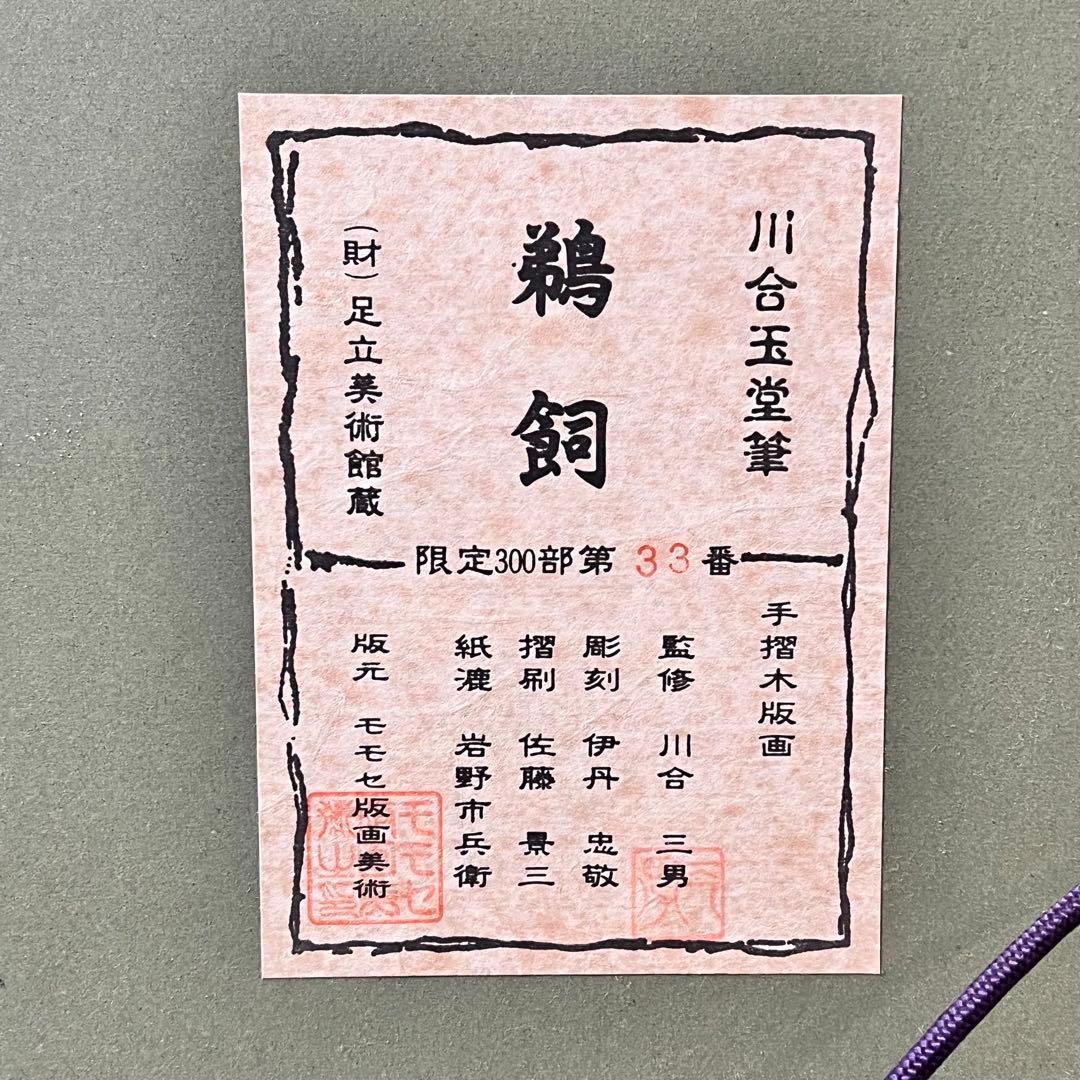 川合玉堂筆
鵜飼
(財)足立美術館蔵
限定300部第33番
手摺木版画
監修 川合 三男
彫刻 伊丹 忠敬
摺刷 佐藤 景三
紙漉 岩野市兵衛
版元 モモセ版画美術